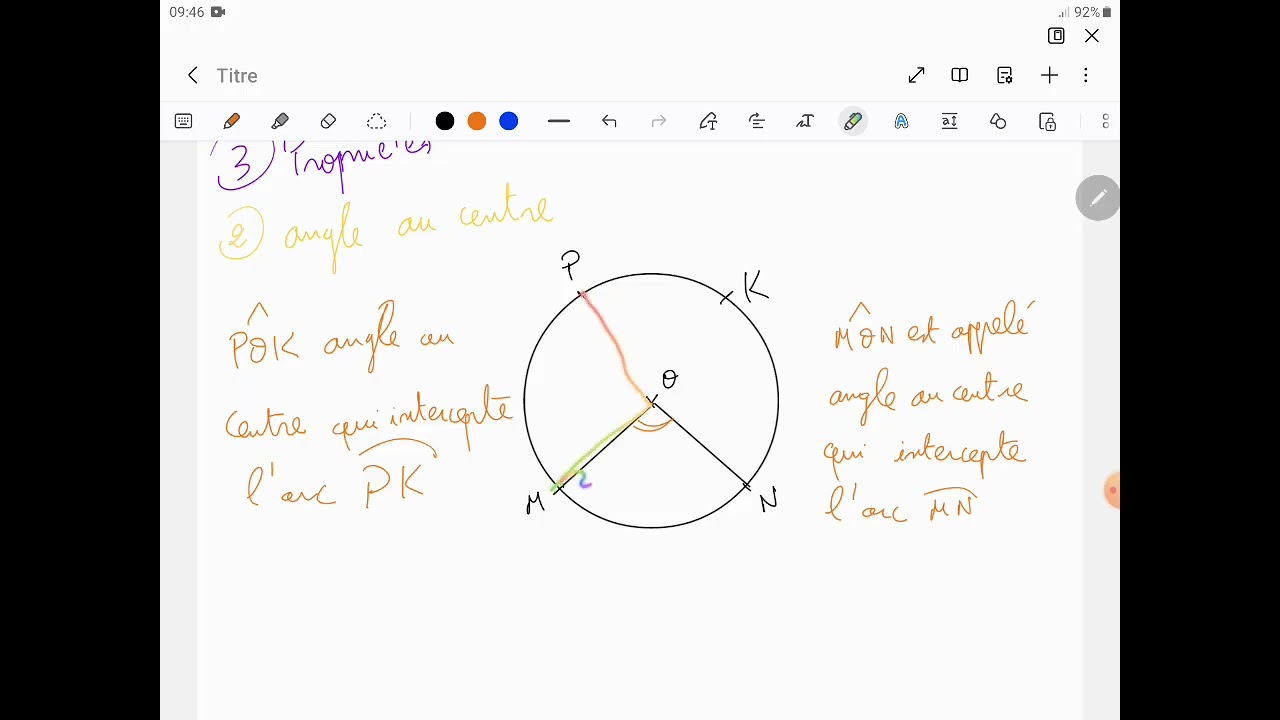 09:46
92%
Titre
3) Propriétés
2) angle au centre
P
K
O
M
N
POK angle au
centre qui intercepte
l'arc PK
MON est appelé
angle au centre
qui intercepte
l'arc MN